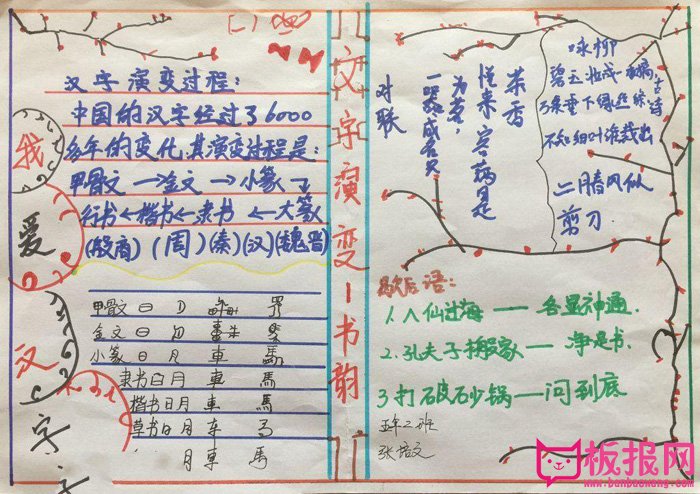 我爱汉字
汉字演变过程:
中国的汉字经过了6000
多年的变化,其演变过程是:
甲骨文→金文→小篆→
行书←楷书←隶书←大篆
(殷商)(周)(秦)(汉)(魏晋)
甲骨文
金文
小篆 日 月 車 馬
隶书 日 月 車 馬
楷书 日 月 車 馬
草书 日 月 车 马
月 車 馬
文字演变一书韵
咏柳
碧玉妆成一树高
万条垂下绿丝绦
不知细叶谁裁出
二月春风似
剪刀
古诗
茶香
对联
歇后语:
1.八仙过海——各显神通.
2.孔夫子搬家——净是书.
3打破砂锅——问到底
五年二班
板报网
www.banbaowang.com